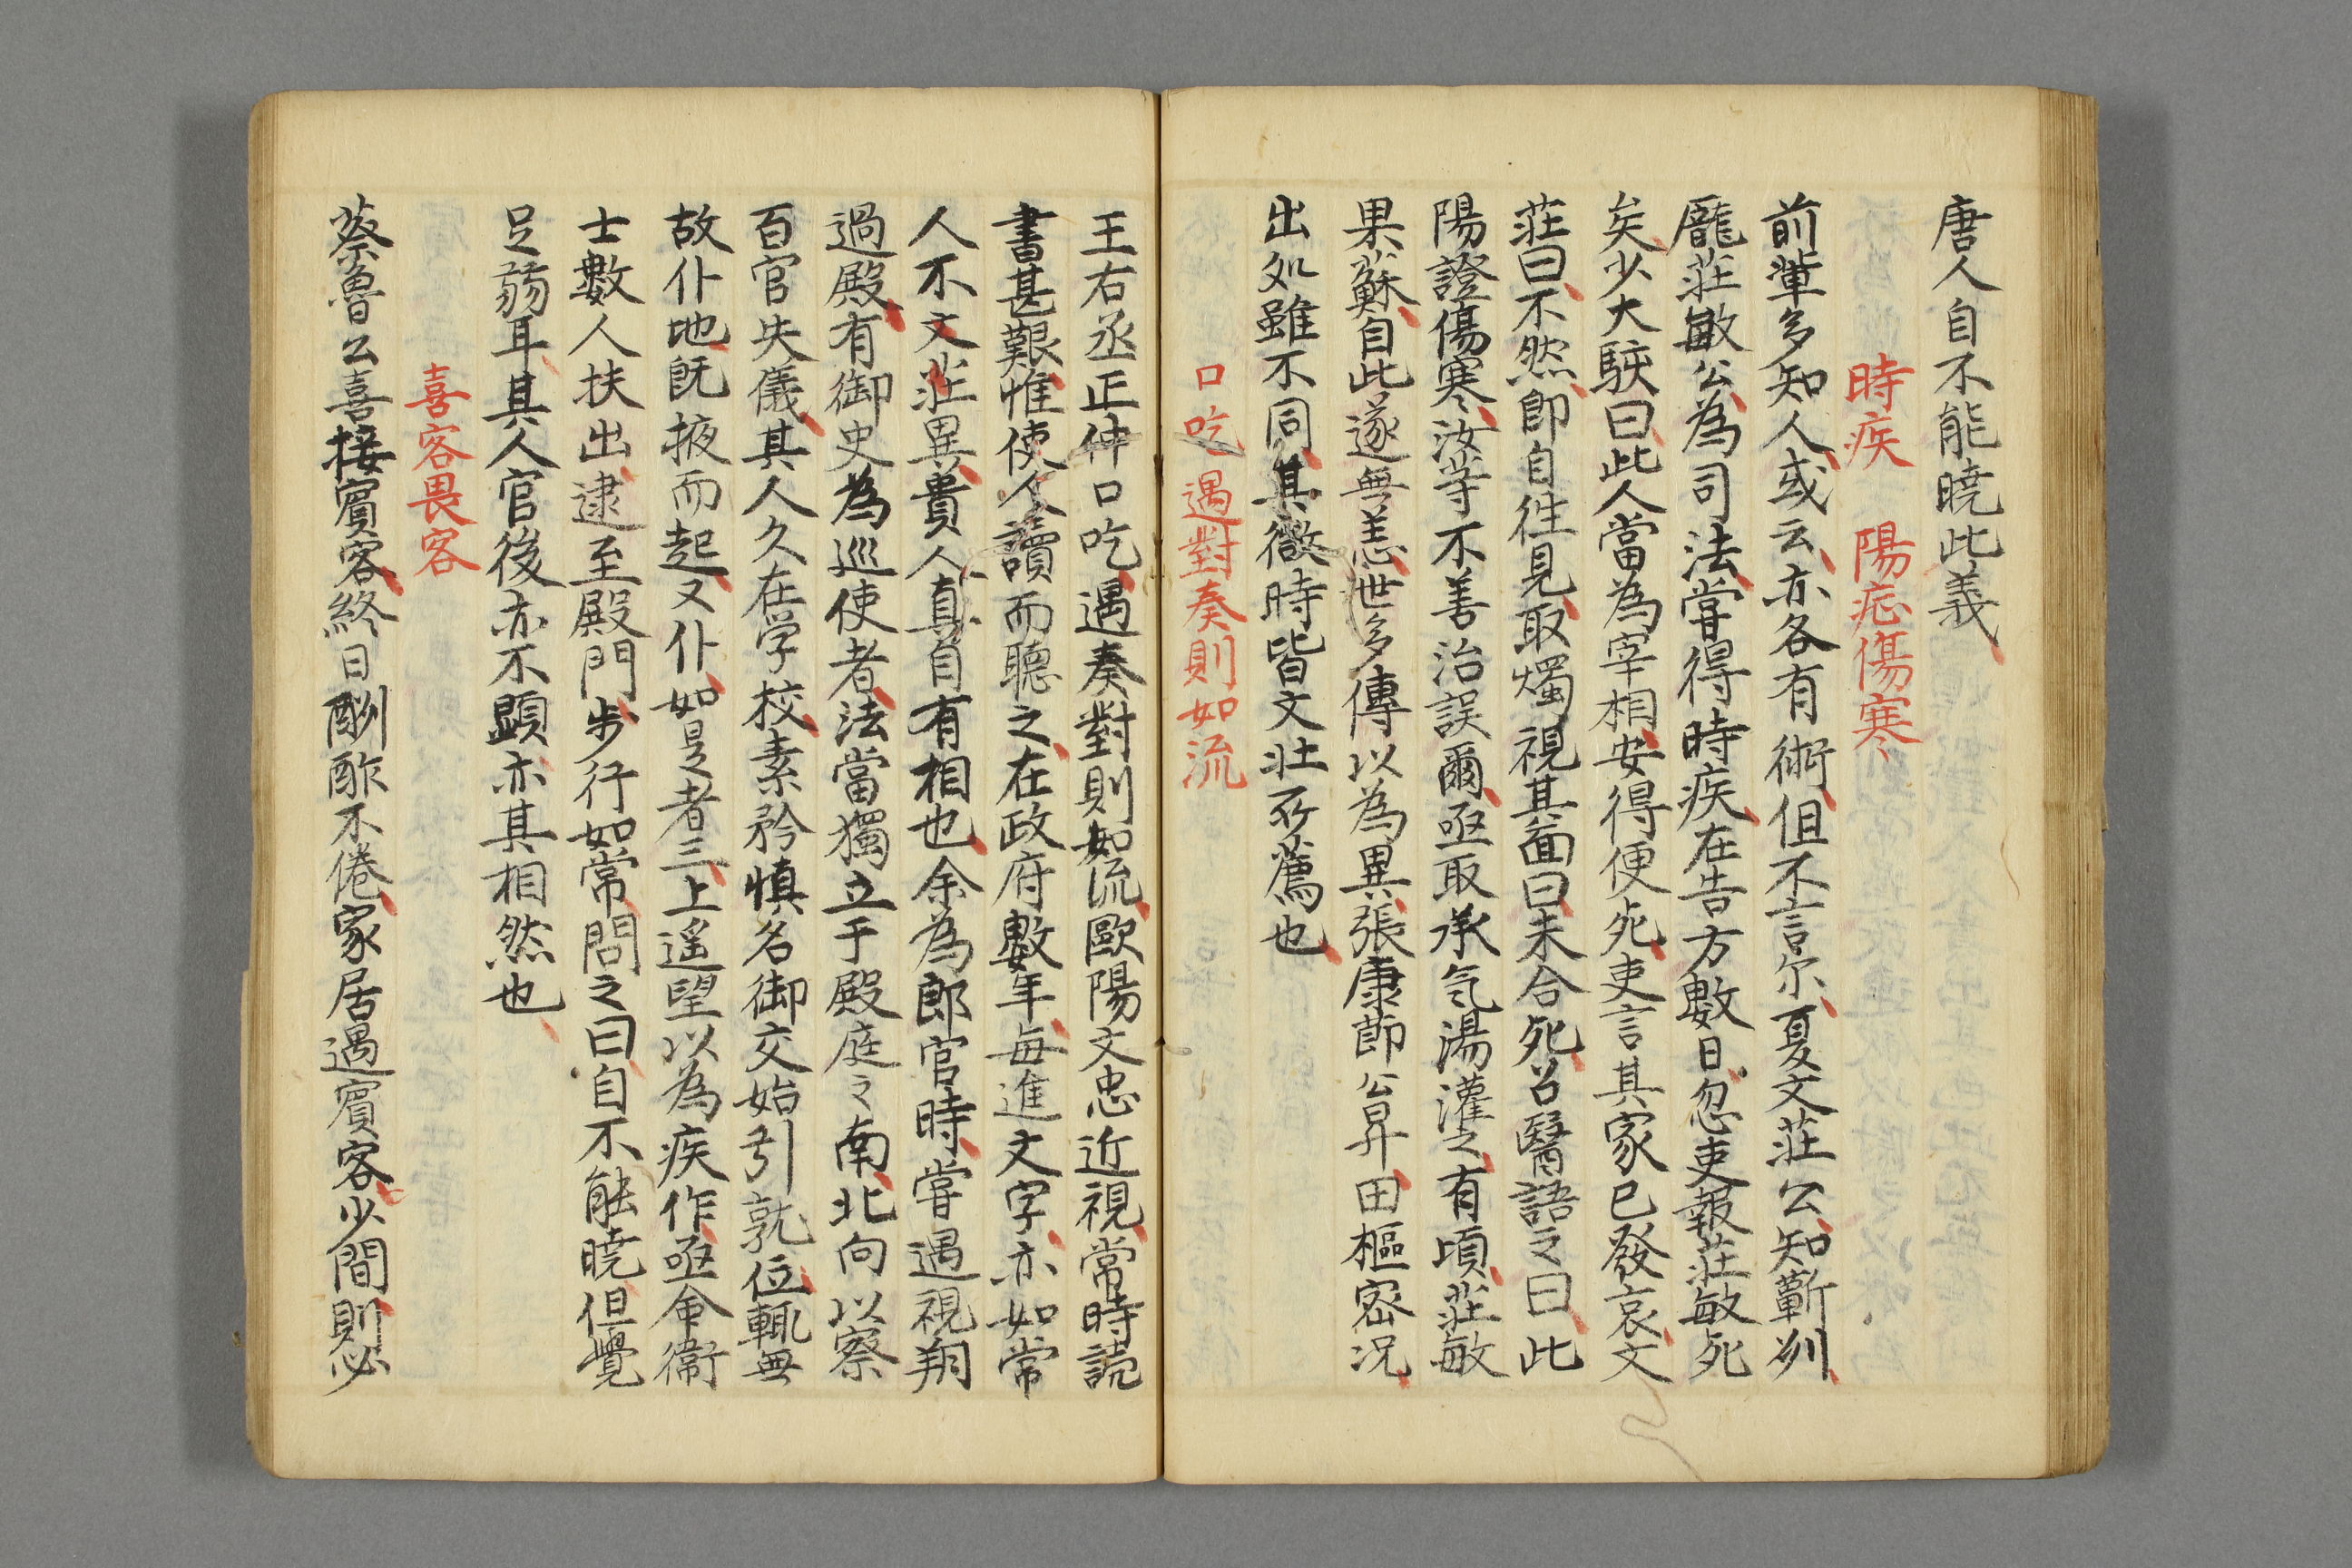 唐人自不能曉此義
時疾 陽症傷寒
前輩多知人或云亦各有術但不言尔夏文莊公知蘄州
龐莊敏公為司法嘗得時疾在告方數日忽吏報莊敏死
矣少大駭曰此人當為宰相安得便死吏言其家已發哀文
莊曰不然即自往見取燭視其面曰未合死召醫語之曰此
陽證傷寒汝等不善治誤爾亟取承气湯灌之有頃莊敏
果蘇自此遂無恙世多傳以為異張康節公昇田樞密況
出処雖不同其微時皆文壮所薦也
口吃遇對奏則如流
王右丞正仲口吃遇奏對則如流歐陽文忠近視常時読
書甚艱惟使人讀而聽之在政府數年每進文字亦如常
人不文莊異貴人真自有相也余為郎官時嘗遇視朔
過殿有御史為巡使者法當獨立于殿庭之南北向以察
百官失儀其人久在学校素矜慎名御交始引就位輒無
故仆地既掖而起又仆如是者三上遥望以為疾作亟命衞
士數人扶出逮至殿門步行如常問之曰自不能曉但覺
足蒻耳其人官後亦不顕亦其相然也
喜客畏客
蔡魯公喜接賓客終日酬酢不倦家居遇賓客少間則必